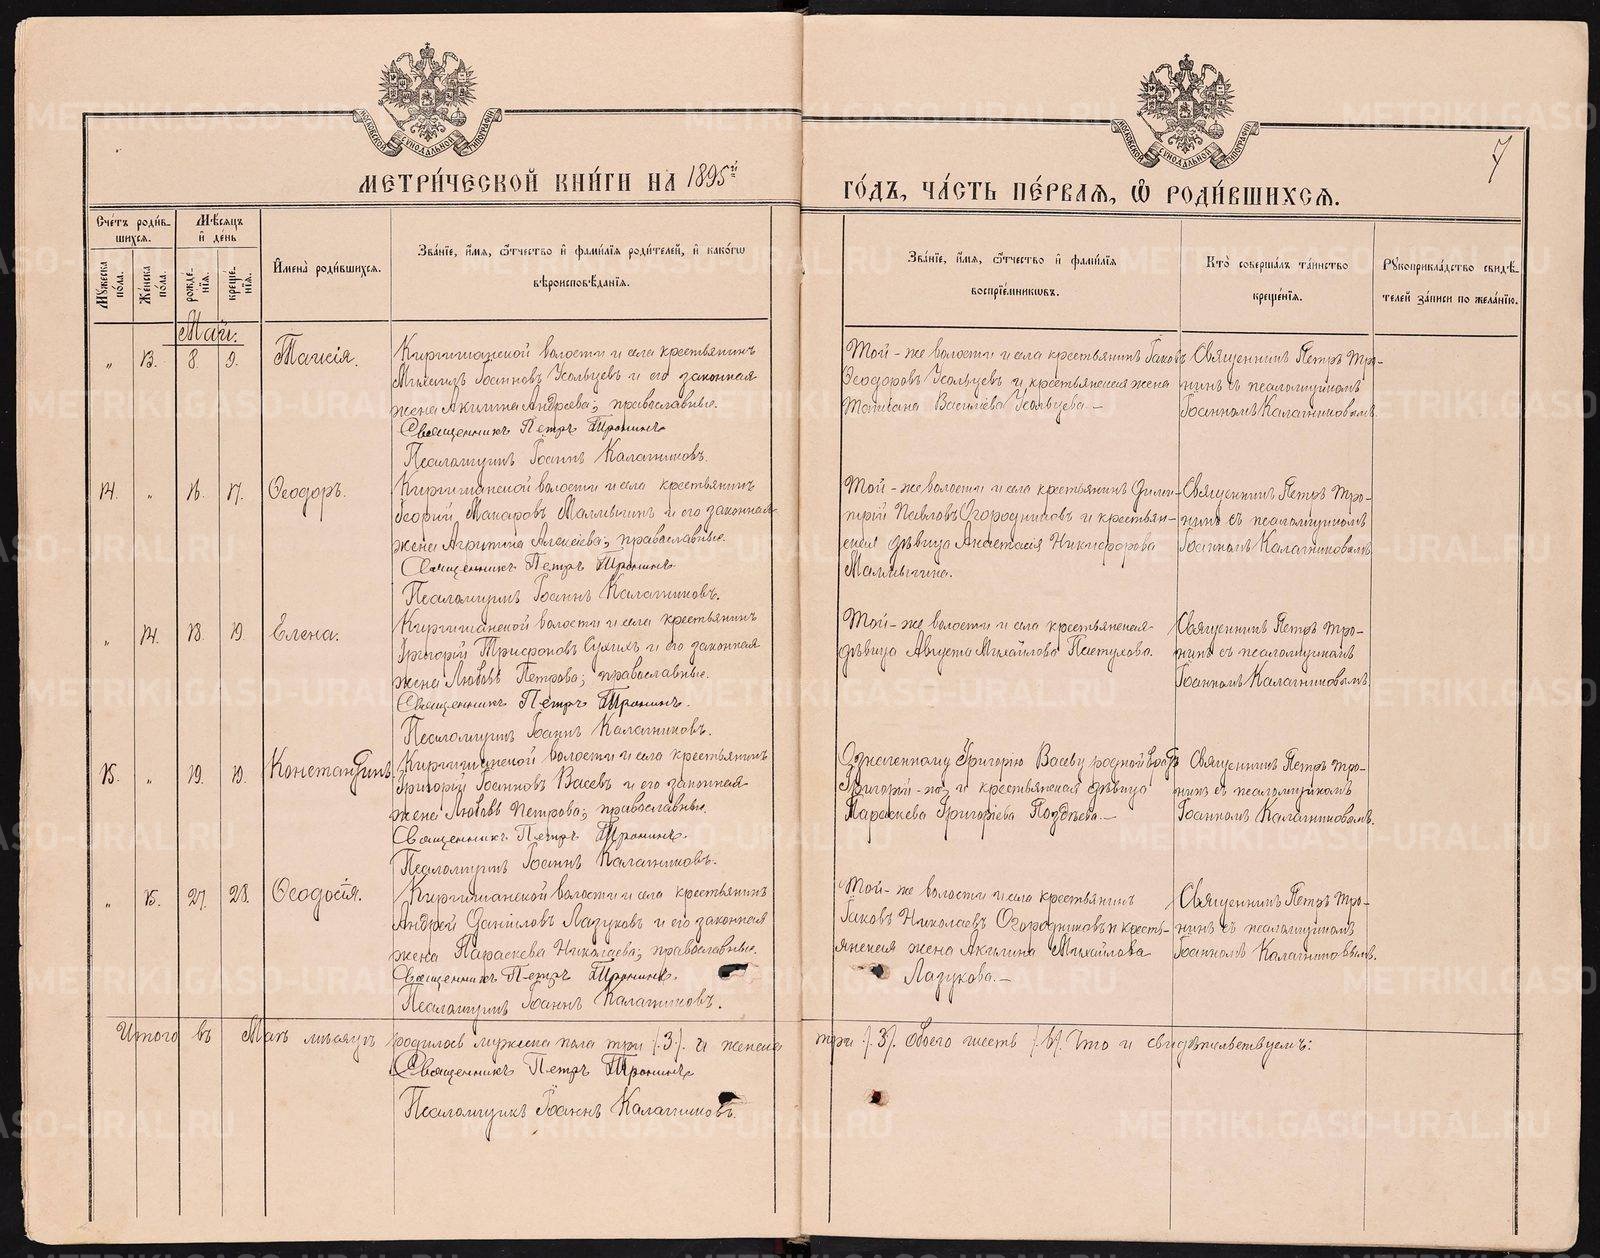 МОСКОВСКОЙ СѴНОДАЛЬНОЙ ТИПОГРАФІИ
МОСКОВСКОЙ СѴНОДАЛЬНОЙ ТИПОГРАФІИ
7
МЕТРИ́ЧЕСКОЙ КНИ́ГИ НА 1895й ГО́ДЪ, ЧА́СТЬ ПЕ́РВАЯ, Ѡ҆ РОДИ́ВШИХСЯ.
Сче́тъ роди́в-
шихся.
Мѣ́сяцъ
и҆ де́нь
Му́жеска по́ла.
Же́нска по́ла.
рожде́-
нія.
креще́-
нія.
И҆мена̀ роди́вшихся.
Зва́ніе, и҆́мя, ѻ҆́тчество и҆ фами́лія роди́телей, и҆ како́гѡ
вѣроисповѣ́данія.
Зва́ніе, и҆́мя, ѻ҆́тчество и҆ фами́лія
воспріе́мникѡвъ.
Кто̀ соверша́лъ та́инство
креще́нія.
Рꙋкоприкла́дство свидѣ́-
телей за́писи по жела́нію.
Май.
" 13. 8. 9. Таисія.
Киргишанской волости и села крестьянинъ
Іоанновъ Усольцевъ и его законная
жена Акилина Андреева; православные.
Священникъ Петръ Тронинъ
Псаломщикъ Іоаннъ Калашниковъ.
Той-же волости и села крестьянинъ Іаковъ
Ѳеодоровъ Усольцевъ и крестьянская жена
Татіана Васильева Усольцева.—
Священникъ Петръ Тро-
нинъ съ псаломщикомъ
Іоанномъ Калашниковымъ.
14. " 16. 17. Ѳеодоръ.
Киргишанской волости и села крестьянинъ
Георгій Макаровъ Малмыгинъ и его законная
жена Агрипина Алексѣева; православные.
Священникъ Петръ Тронинъ
Псаломщикъ Іоаннъ Калашниковъ.
Той-же волости и села крестьянинъ Дими-
трій Павловъ Огородниковъ и крестьян-
ская дѣвица Анастасія Никифорова
Малмыгина.
Священникъ Петръ Тро-
нинъ съ псаломщикомъ
Іоанномъ Калашниковымъ
" 14. 18. 19. Елена.
Киргишанской волости и села крестьянинъ
Григорій Трифоновъ Сухихъ и его законная
жена Любовь Петрова; православные.
Священникъ Петръ Тронинъ.
Псаломщикъ Іоаннъ Калашниковъ.
Той-же волости и села крестьянская
дѣвица Августа Михайлова Пастухова.
Священникъ Петръ Тро-
нинъ съ псаломщикомъ
Іоанномъ Калашниковымъ
15. " 19. 19. Константинъ.
Киргишанской волости и села крестьянинъ
Григорій Іоанновъ Васевъ и его законная
жена Любовь Петрова; православные.
Священникъ Петръ Тронинъ.
Псаломщикъ Іоаннъ Калашниковъ.
Означенному Григорію Васеву родной братъ
Григорій-же и крестьянская дѣвица
Параскева Григоріева Поздѣева.—
Священникъ Петръ Тро-
нинъ съ псаломщикомъ
Іоанномъ Калашниковымъ.
" 15. 27. 28. Ѳеодосія.
Киргишанской волости и села крестьянинъ
Андрей Даніиловъ Лазуковъ и его законная
жена Параскева Николаева; православные.
Священникъ Петръ Тронинъ.
Псаломщикъ Іоаннъ Калашниковъ.
Той-же волости и села крестьянинъ
Іаковъ Николаевъ Огородниковъ и кресть-
янская жена Акилина Михайлова
Лазукова.—
Священникъ Петръ Тро-
нинъ съ псаломщикомъ
Іоанномъ Калашниковымъ.
Итого въ Маѣ мѣсяцѣ родилось мужеска пола три /3/. и женска три /3/. Обоего шесть /6/. Что и свидѣтельствуемъ:
Священникъ Петръ Тронинъ
Псаломщикъ Іоаннъ Калашниковъ.
METRIKI.GASO-URAL.RU